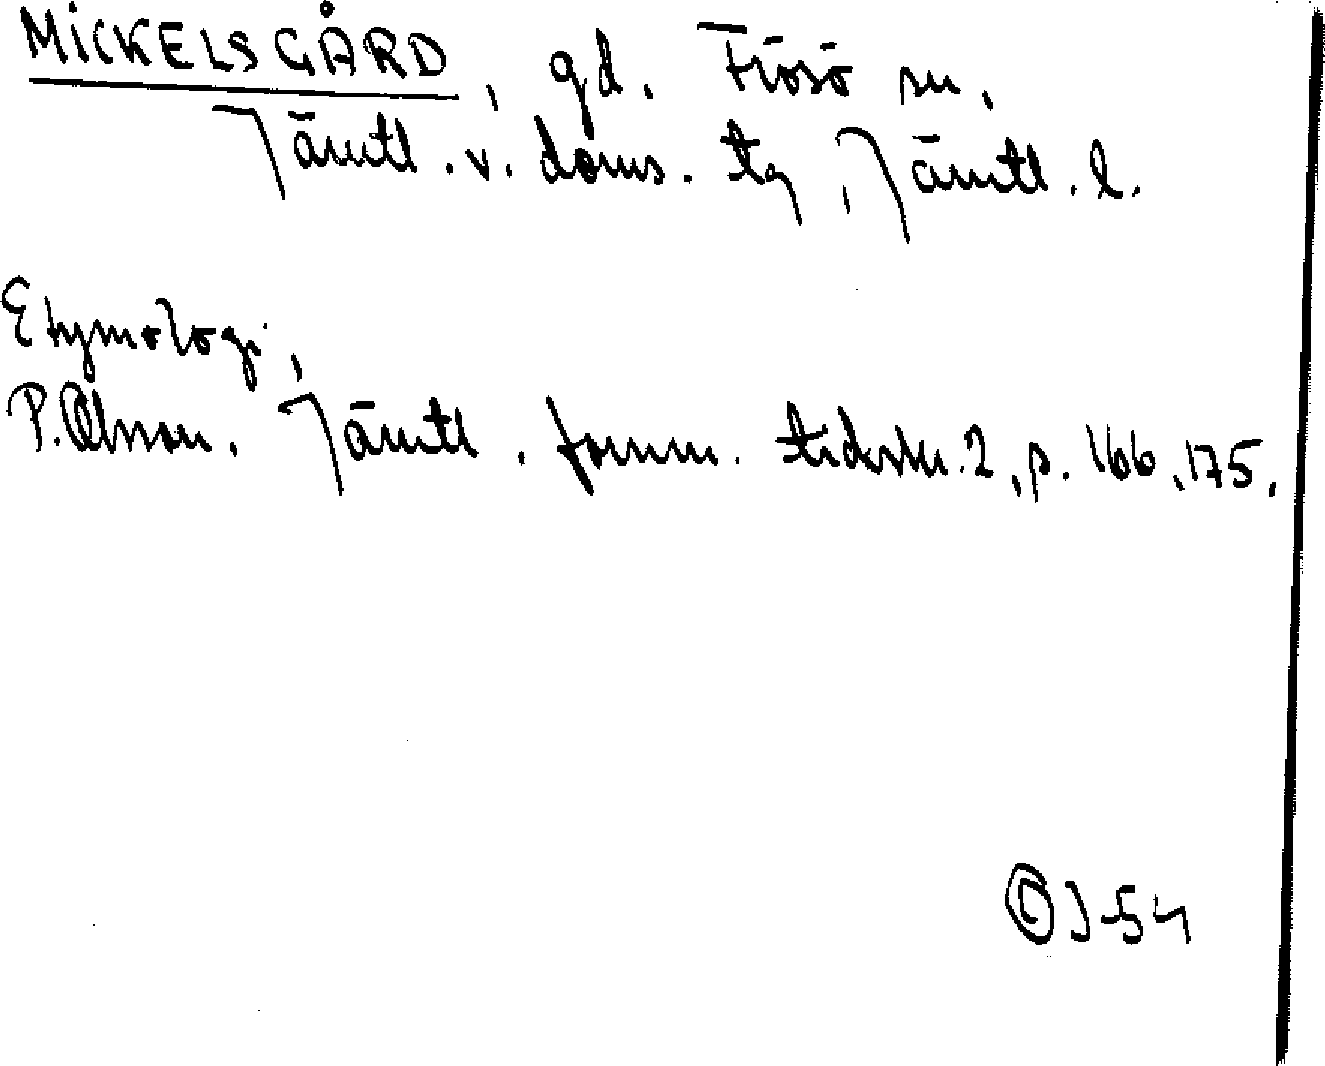 MICKELSGÅRD, gd. Frösö sn,
Jämtl. v. doms. tg, Jämtl. l.
Etymologi,
P. Olsson. Jämtl. fornm. tidskr. 2, p. 166, 175.
J-54